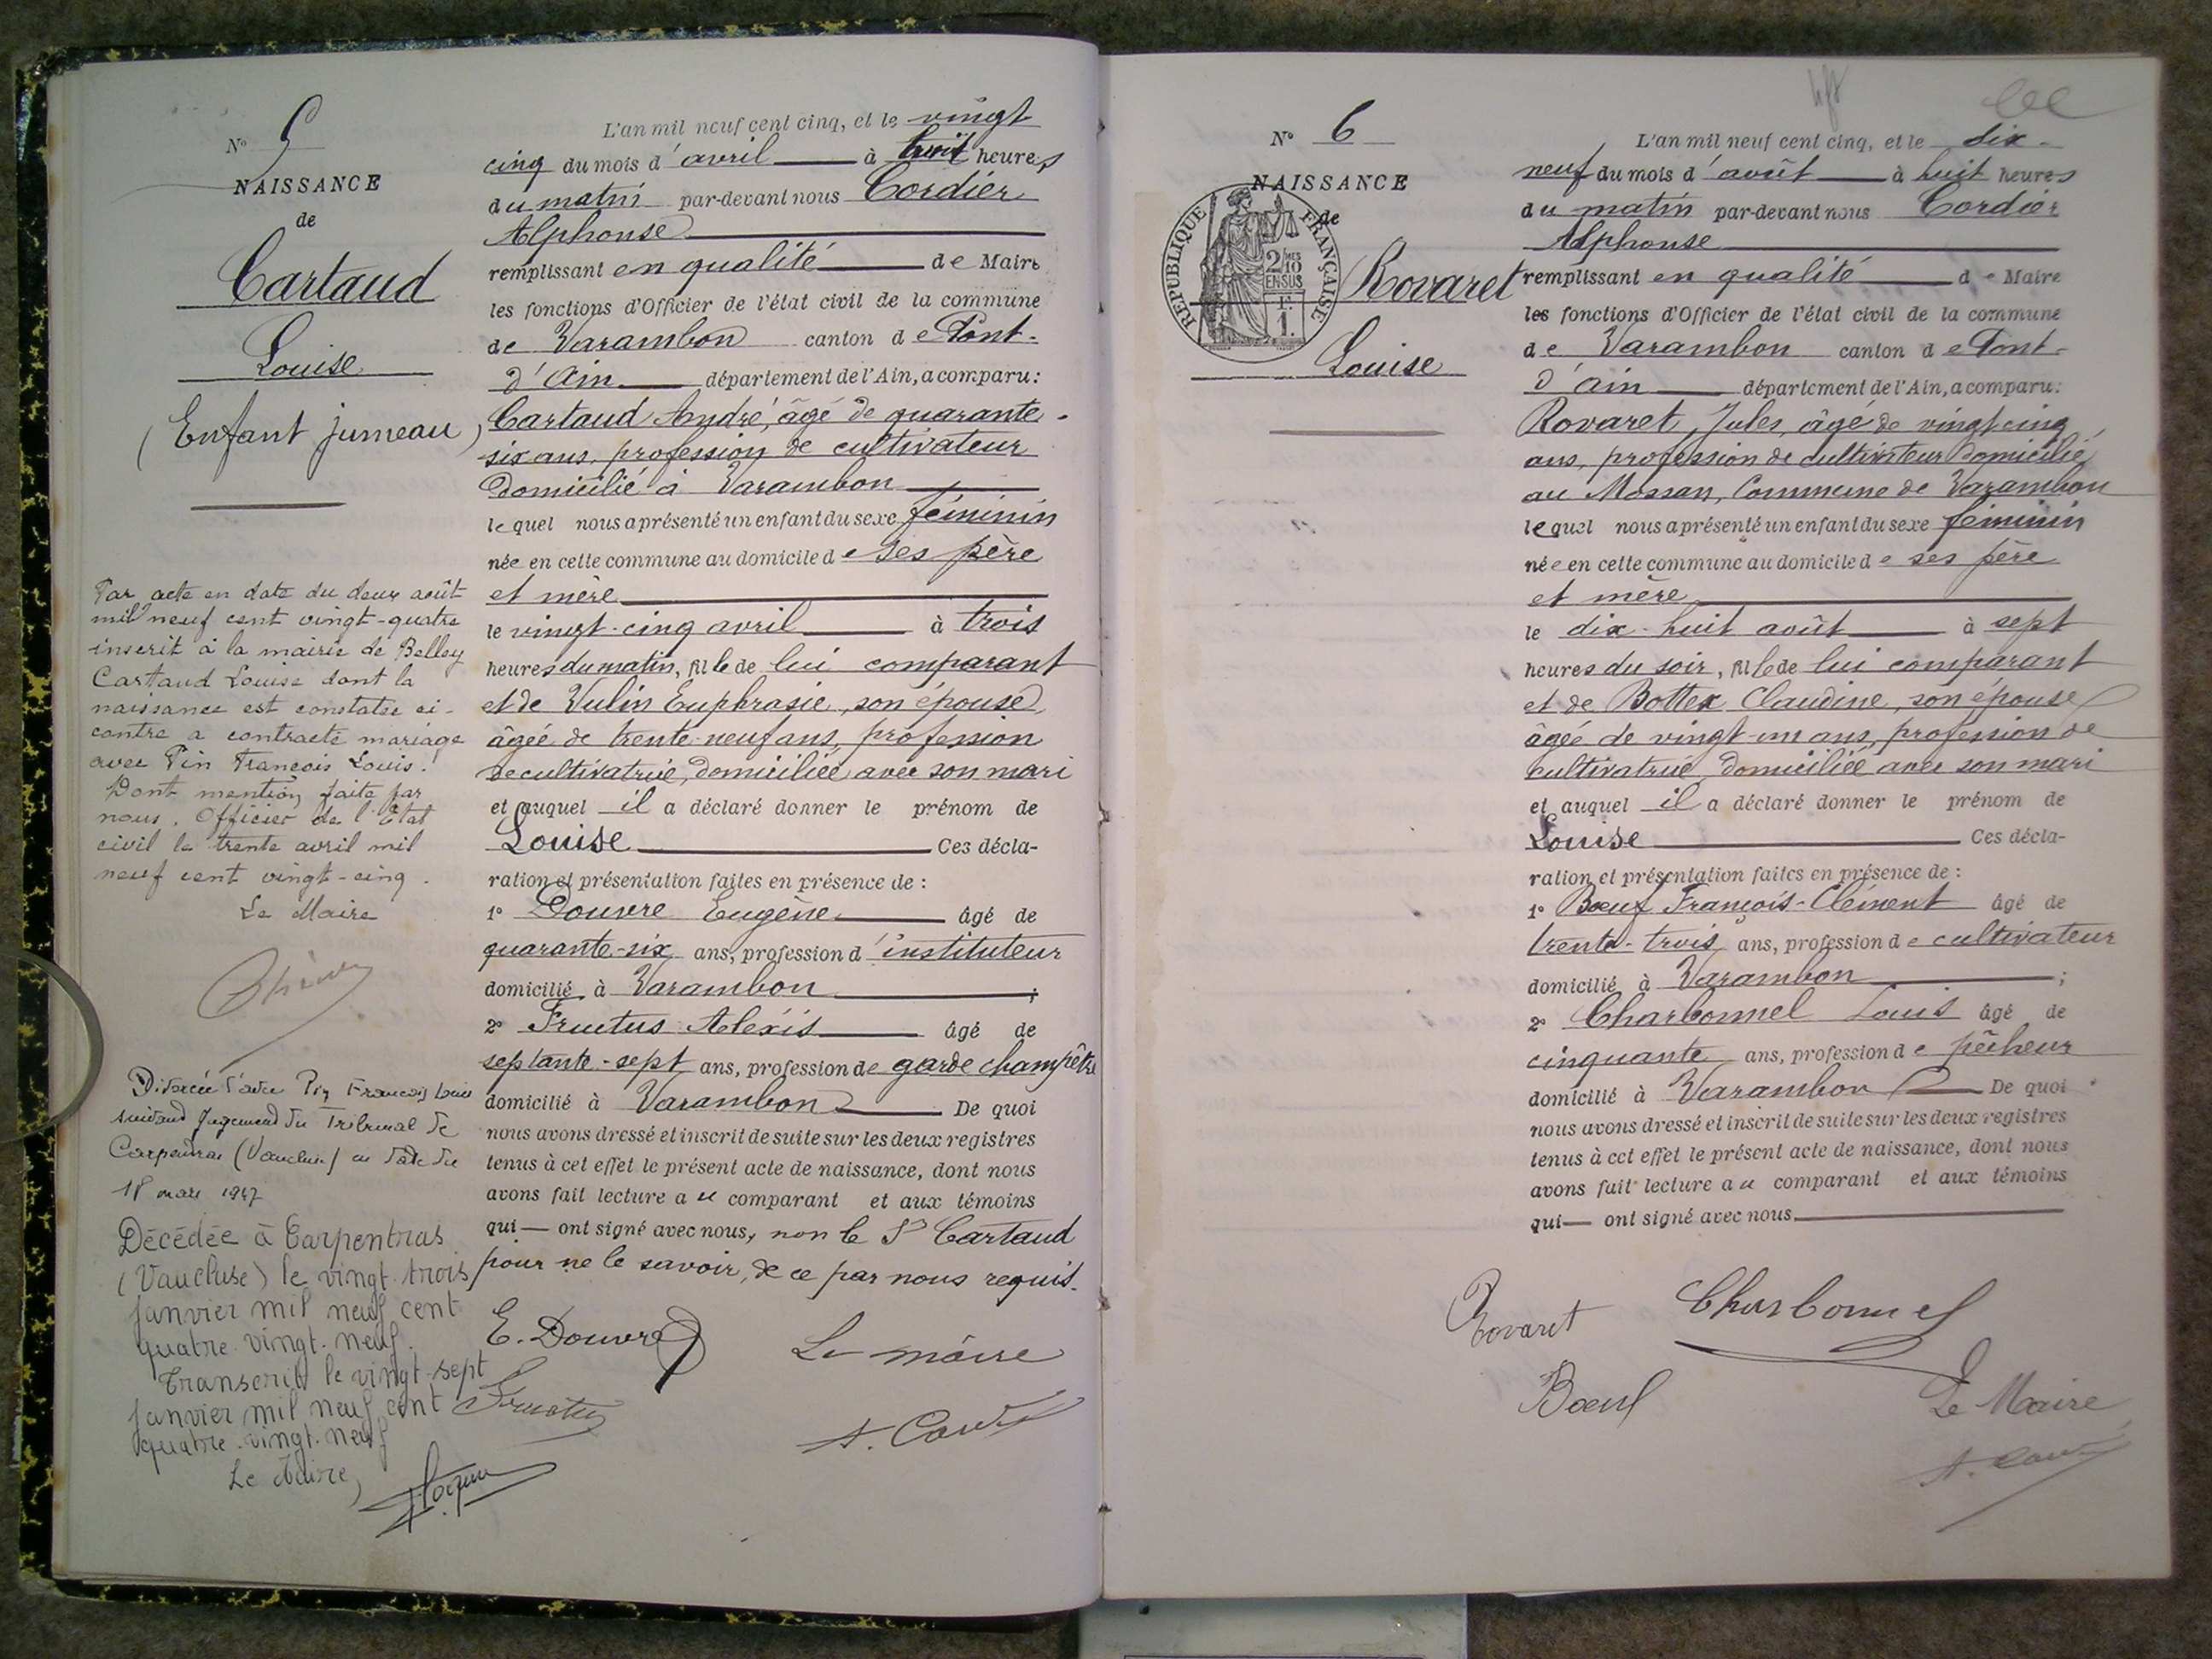 N° 5
NAISSANCE
de
Cartaud
Louise
(Enfant jumeau)
Par acte en date du deux août
mil neuf cent vingt-quatre
inscrit à la mairie de Belley
Cartaud Louise dont la
naissance est constatée ci-
contre a contracté mariage
avec Pin François Louis.
Dont mention faite par
nous, Officier de l'Etat
civil le trente avril mil
neuf cent vingt-cinq.
Le Maire
Divorcée d'avec Pin François Louis
suivant jugement du Tribunal de
Carpentras (Vaucluse) en date du
18 mars 1947
Décédée à Carpentras
(Vaucluse) le vingt-trois
janvier mil neuf cent
quatre-vingt-neuf.
Transcrit le vingt-sept
janvier mil neuf cent
quatre-vingt-neuf
Le Maire,
L'an mil neuf cent cinq, et le vingt
cinq du mois d'avril à huit heures
du matin par-devant nous Cordier
Alphonse
remplissant en qualité de Maire
les fonctions d'Officier de l'état civil de la commune
de Varambon canton de Pont-
d'Ain département de l'Ain, a comparu:
Cartaud André, âgé de quarante-
six ans, profession de cultivateur
domicilié à Varambon
lequel nous a présenté un enfant du sexe féminin
née en cette commune au domicile de ses père
et mère
le vingt-cinq avril à trois
heures du matin, fille de lui comparant
et de Vulin Euphrasie, son épouse,
âgée de trente-neuf ans, profession
de cultivatrice, domiciliée avec son mari
et auquel il a déclaré donner le prénom de
Louise Ces décla-
ration et présentation faites en présence de :
1° Douvre Eugène âgé de
quarante-six ans, profession d'instituteur
domicilié à Varambon ;
2° Fructus Alexis âgé de
septante-sept ans, profession de garde champêtre
domicilié à Varambon De quoi
nous avons dressé et inscrit de suite sur les deux registres
tenus à cet effet le présent acte de naissance, dont nous
avons fait lecture au comparant et aux témoins
qui ont signé avec nous, non le Sr Cartaud
pour ne le savoir, de ce par nous requis.
E. Douvre
Le maire
Fructus
N° 6
NAISSANCE
de
RÉPUBLIQUE FRANÇAISE
2/10 MES
EN SUS
F.
1.
Rovaret
Louise
L'an mil neuf cent cinq, et le dix-
neuf du mois d'août à huit heures
du matin par-devant nous Cordier
Alphonse
remplissant en qualité de Maire
les fonctions d'Officier de l'état civil de la commune
de Varambon canton de Pont-
d'ain département de l'Ain, a comparu:
Rovaret, Jules, âgé de vingt-cinq
ans, profession de cultivateur domicilié
au Mossan, Commune de Varambon
lequel nous a présenté un enfant du sexe féminin
née en cette commune au domicile de ses père
et mère
le dix-huit août à sept
heures du soir, fille de lui comparant
et de Bottex Claudine, son épouse
âgée de vingt-un ans, profession de
cultivatrice, domiciliée avec son mari
et auquel il a déclaré donner le prénom de
Louise Ces décla-
ration et présentation faites en présence de :
1° Boeuf François-Clément âgé de
trente-trois ans, profession de cultivateur
domicilié à Varambon ;
2° Charbonnel Louis âgé de
cinquante ans, profession de pêcheur
domicilié à Varambon De quoi
nous avons dressé et inscrit de suite sur les deux registres
tenus à cet effet le présent acte de naissance, dont nous
avons fait lecture au comparant et aux témoins
qui ont signé avec nous.
Rovaret
Charbonnel
Boeuf
Le Maire